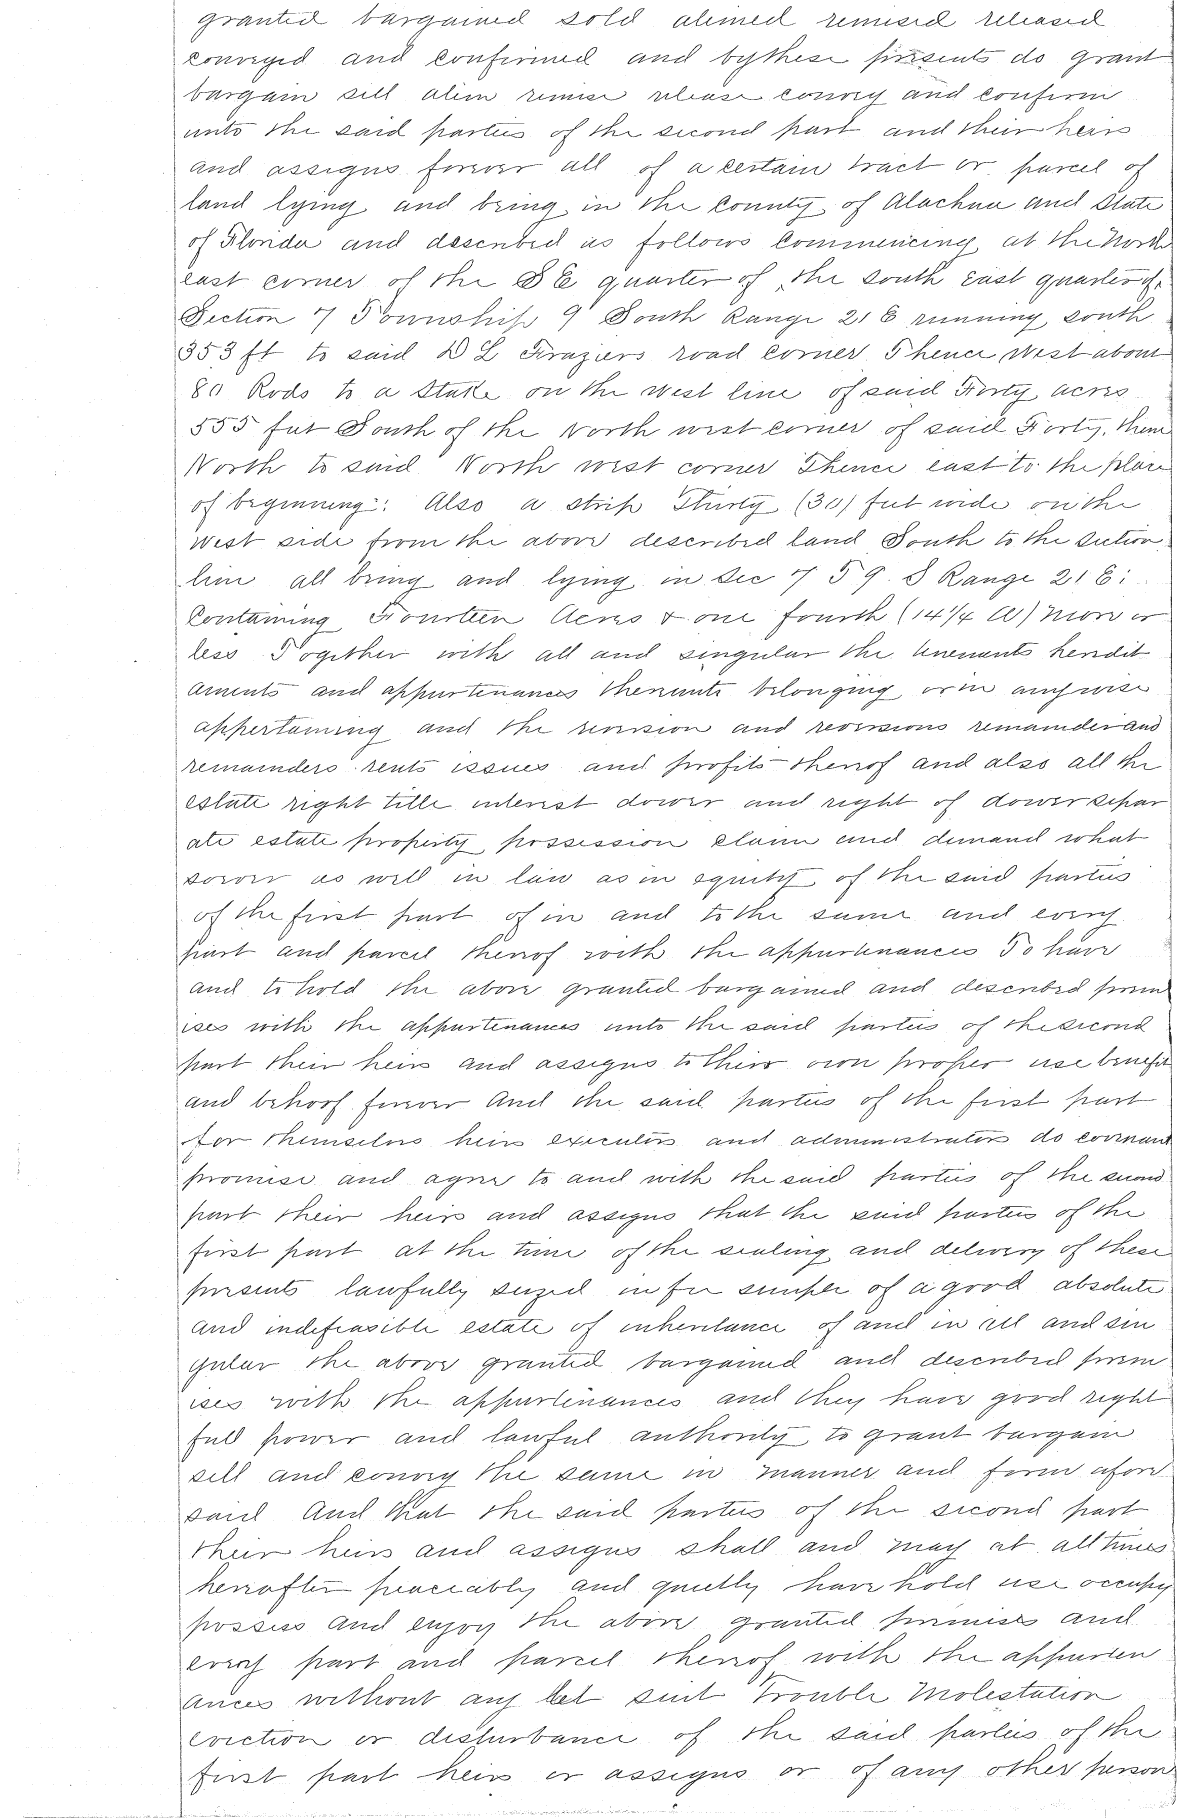 granted bargained sold aliened remised released
conveyed and confirmed and bythese presents do grant
bargain sell alien remise release convey and confirm
unto the said parties of the second part and their heirs
and assigns forever all of a certain tract or parcel of
land lying and being in the County of Alachua and State
of Florida and described as follows Commencing at the North
east corner of the SE quarter of the south east quarter of
Section 7 Township 9 South Range 21 E running south
353 ft to said D L Fraziers road corner Thence West about
80 Rods to a Stake on the west line of said Forty acres
555 feet South of the North west corner of said Forty, thence
North to said North west corner Thence east to the place
of beginning: Also a strip Thirty (30) feet wide on the
West side from the above described land South to the section
line all being and lying in Sec 7 T 9 S Range 21 E:
Containing Fourteen Acres & one fourth (14 1/4 A) More or
less Together with all and singular the tenements heredit
aments and appurtenances thereunto belonging or in anywise
appertaining and the revision and reversions remainder and
remainders rents issues and profits thereof and also all the
estate right title interest dower and right of dower separ
ate estate property possession claim and demand what
soever as well in law as in equity of the said parties
of the first part of in and to the same and every
part and parcel thereof with the appurtenances To have
and to hold the above granted bargained and described prem
ises with the appurtenances unto the said parties of the second
part their heirs and assigns to their own proper use benefit
and behoof forever And the said parties of the first part
for themselves heirs executors and administrators do covenant
promise and agree to and with the said parties of the second
part their heirs and assigns that the said parties of the
first part at the time of the sealing and delivery of these
presents lawfully seized in fee simple of a good absolute
and indefeasible estate of inheritance of and in all and sin
gular the above granted bargained and described prem
ises with the appurtenances and they have good right
full power and lawful authority to grant bargain
sell and convey the same in manner and form afore
said And that the said parties of the second part
their heirs and assigns shall and may at all times
hereafter peaceably and quietly have hold use occupy
possess and enjoy the above granted premises and
every part and parcel thereof with the appurten
ances without any let suit trouble Molestation
eviction or disturbance of the said parties of the
first part heirs or assigns or of any other person